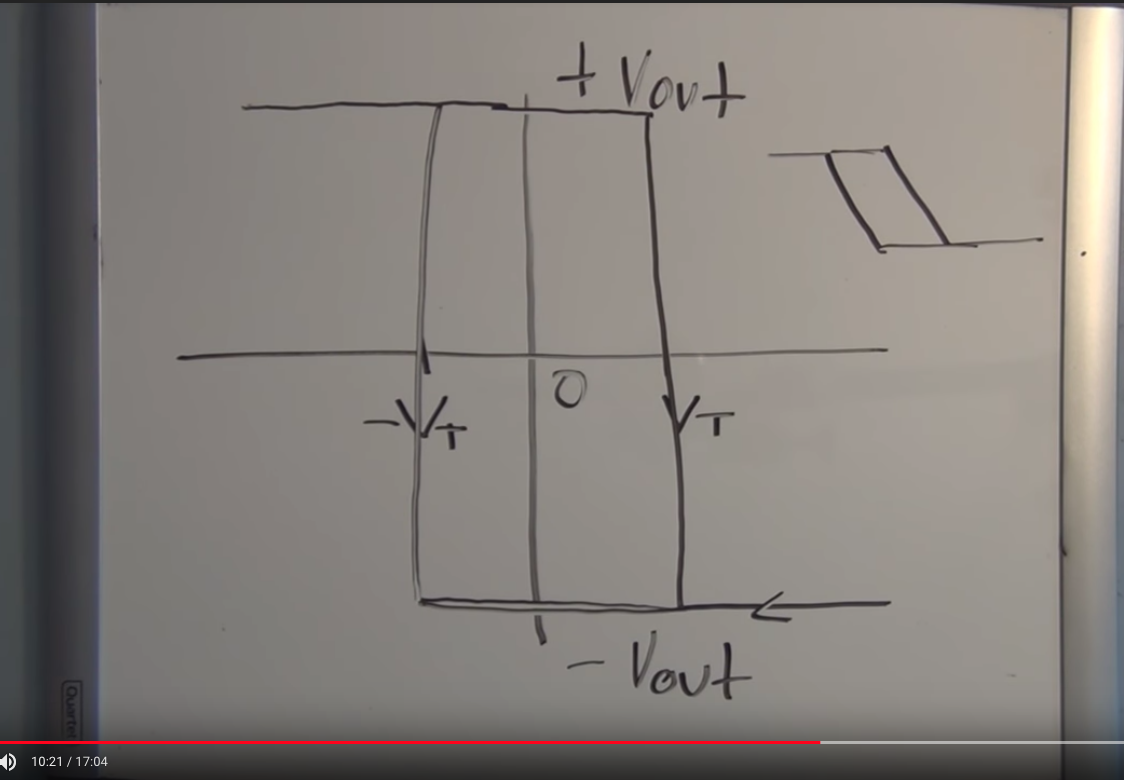 + Vout
0
-VT VT
- Vout
Quartet
10:21 / 17:04